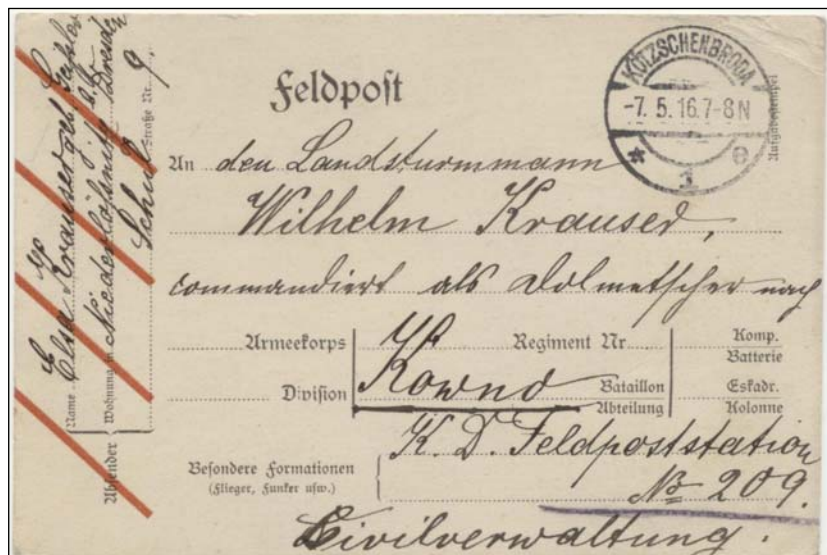 Feldpost
KÖTZSCHENBRODA
-7. 5. 16. 7-8 N
* 1 e
Aufgabestempel
An den Landsturmmann
Wilhelm Krauser,
commandiert als Dolmetscher nach
Armeekorps
Regiment Nr.
Komp.
Batterie
Kowno
Division
Bataillon
Abteilung
Eskadr.
Kolonne
K. D. Feldpoststation
№ 209.
Besondere Formationen
(Flieger, Funker usw.)
Civilverwaltung.
Absender
Name Elsa Krauser
Wohnung in Niederlößnitz b. Dresden
Schul Straße Nr. 9.